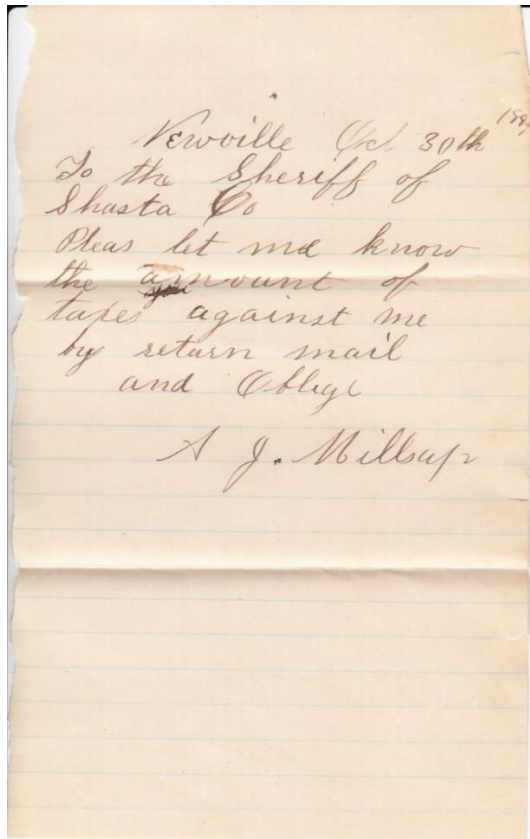 Newville Oct. 30th
To the Sheriff of
Shasta Co
Pleas let me know
the amount of
taxes against me
by return mail
and Oblige
A J. Millsap